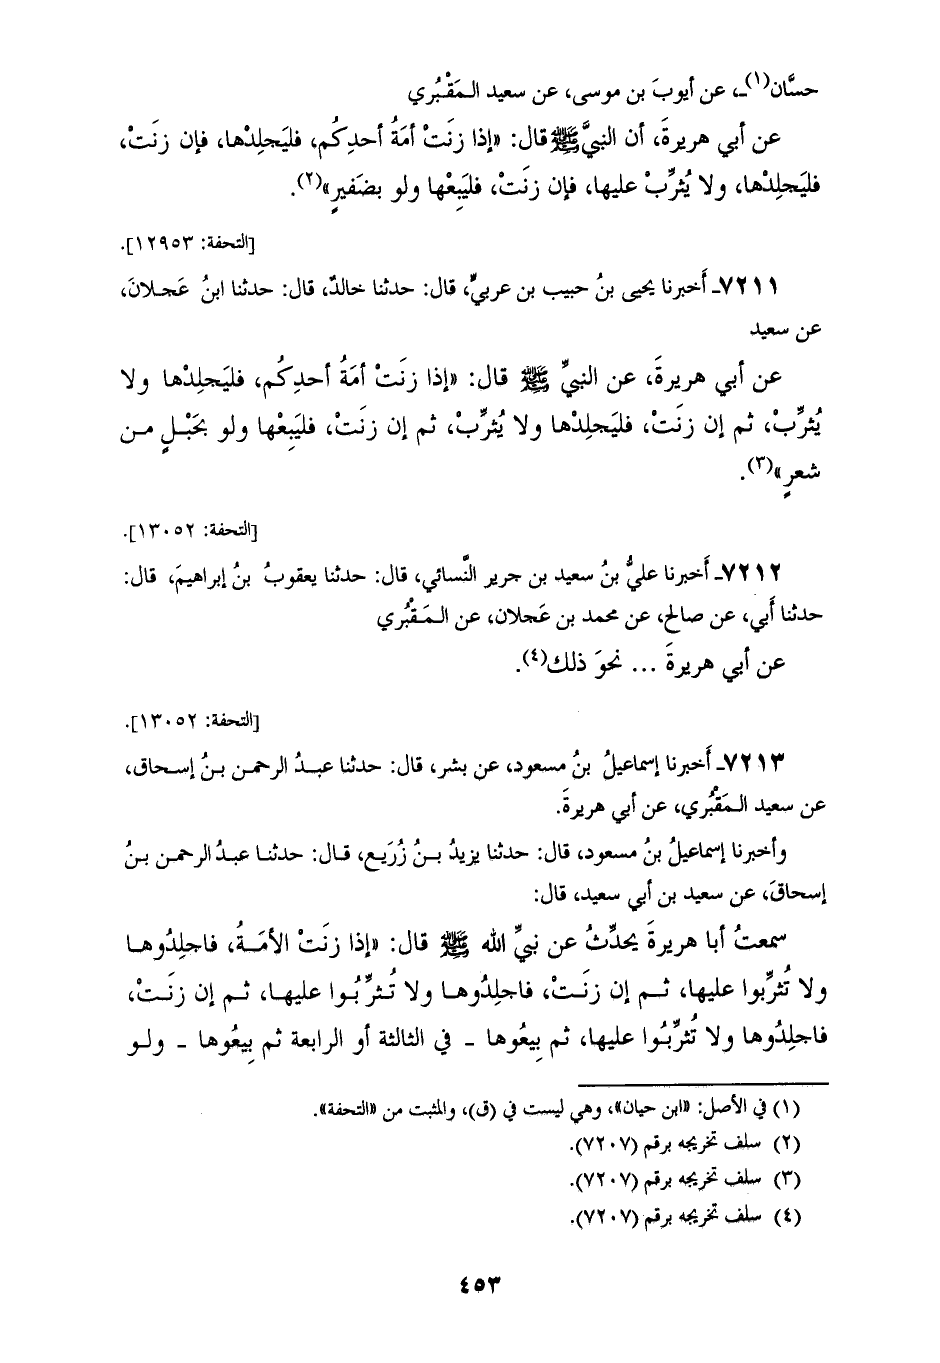 حسَّان(١)ـ، عن أيوبَ بن موسى، عن سعيد المَقْبُري
عن أبي هريرةَ، أن النبيَّ ﷺ قال: «إذا زَنَتْ أمَةُ أحدِكُم، فليَجلِدْها، فإن زَنَتْ،
فليَجلِدْها، ولا يُثرِّبْ عليها، فإن زَنَتْ، فليَبِعْها ولو بضَفيرٍ»(٢).
[التحفة: ١٢٩٥٣].
٧٢١١ـ أَخبرنا يحيى بنُ حبيب بن عربيٍّ، قال: حدثنا خالدٌ، قال: حدثنا ابنُ عَجلانَ،
عن سعيد
عن أبي هريرةَ، عن النبيِّ ﷺ قال: «إذا زَنَتْ أمَةُ أحدِكُم، فليَجلِدْها ولا
يُثرِّبْ، ثم إن زَنَتْ، فليَجلِدْها ولا يُثرِّبْ، ثم إن زَنَتْ، فليَبِعْها ولو بحَبْلٍ من
شعرٍ»(٣).
[التحفة: ١٣٠٥٢].
٧٢١٢ـ أَخبرنا عليُّ بنُ سعيد بن جرير النَّسائي، قال: حدثنا يعقوبُ بنُ إبراهيمَ، قال:
حدثنا أَبي، عن صالح، عن محمد بن عَجلان، عن المَقْبُري
عن أبي هريرةَ ... نحوَ ذلك(٤).
[التحفة: ١٣٠٥٢].
٧٢١٣ـ أَخبرنا إسماعيلُ بنُ مسعود، عن بشر، قال: حدثنا عبدُ الرحمن بنُ إسحاق،
عن سعيد المَقْبُري، عن أبي هريرةَ.
وأخبرنا إسماعيلُ بنُ مسعود، قال: حدثنا يزيدُ بنُ زُرَيع، قال: حدثنا عبدُ الرحمن بنُ
إسحاقَ، عن سعيد بن أبي سعيد، قال:
سمعتُ أبا هريرةَ يحدِّثُ عن نبيِّ الله ﷺ قال: «إذا زَنَتْ الأمَةُ، فاجلِدُوها
ولا تُثرِّبوا عليها، ثم إن زَنَتْ، فاجلِدُوها ولا تُثرِّبُوا عليها، ثم إن زَنَتْ،
فاجلِدُوها ولا تُثرِّبُوا عليها، ثم بِيعُوها - في الثالثة أو الرابعة ثم بِيعُوها - ولو
(١) في الأصل: «ابن حيان»، وهي ليست في (ق)، والمثبت من «التحفة».
(٢) سلف تخريجه برقم (٧٢٠٧).
(٣) سلف تخريجه برقم (٧٢٠٧).
(٤) سلف تخريجه برقم (٧٢٠٧).
٤٥٣